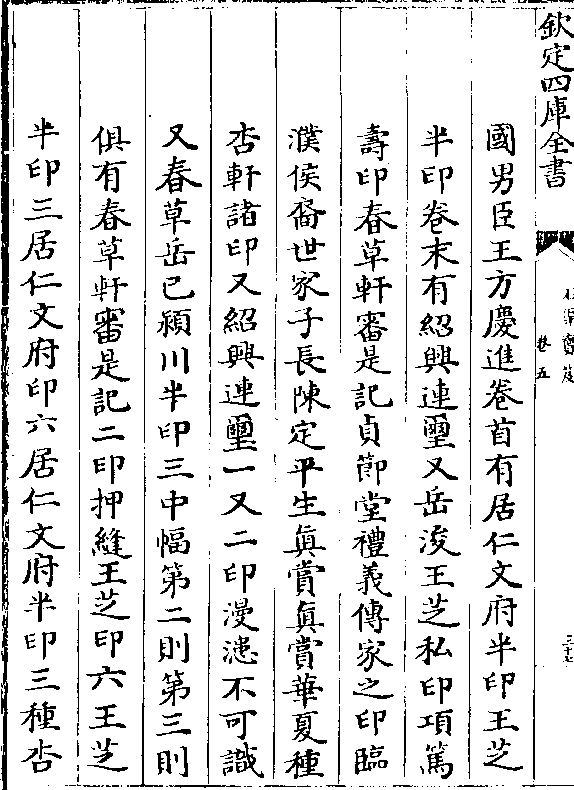 欽定四庫全書
卷五
國男臣王方慶進卷首有居仁文府半印王芝
半印卷末有紹興連璽又岳浚王芝私印項篤
壽印春草軒審是記貞節堂禮義傳家之印臨
濮侯裔世家子長陳定平生眞賞眞賞華夏種
杏軒諸印又紹興連璽一又二印漫漶不可識
又春草岳已潁川半印三中幅第二則第三則
俱有春草軒審是記二印押縫王芝印六王芝
半印三居仁文府印六居仁文府半印三種杏